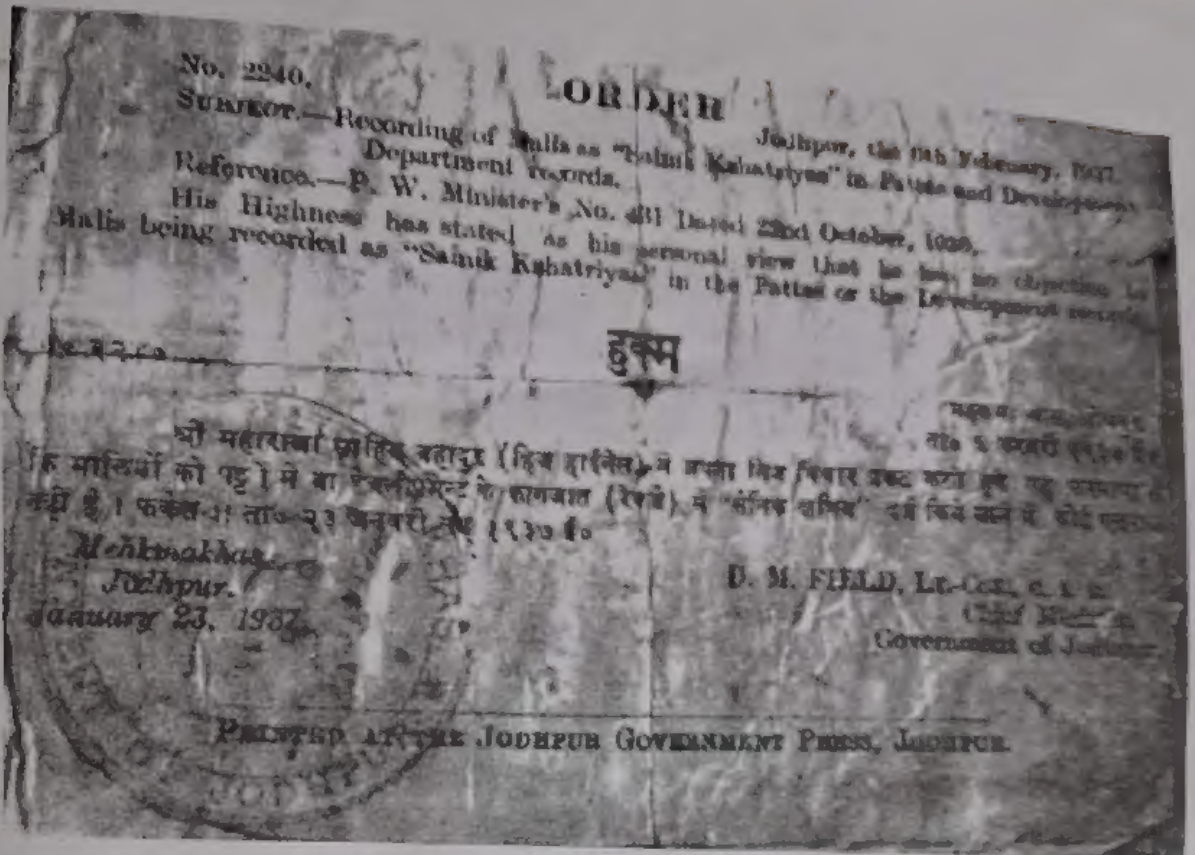 No. 2240.
ORDER
Jodhpur, the February,
SUBJECT.—Recording of Malis as "Sainik Kshatriyas" in Pattas and Development
Department records.
Reference.—P. W. Minister's No. Dated 22nd October,
His Highness has stated as his personal view that he has no objection to
Malis being recorded as "Sainik Kshatriyas" in the Pattas or the Development records.
हुक्म
श्री महाराजा साहिब बहादुर (हिज हाईनेस) ने अपना निज विचार प्रकट करते हुये यह फरमाया है
कि मालियों को पट्टों में या डेवलपमेन्ट के कागजात (रेकर्ड) में "सैनिक क्षत्रिय" दर्ज किये जाने में कोई
नहीं है । ता० २३ जनवरी सन् १९३७ ई०
Mehkmakhas
Jodhpur.
January 23, 1937.
D. M. FIELD, Lt.-Col., C. I. E.
Chief Minister,
Government of Jodhpur
PRINTED AT THE JODHPUR GOVERNMENT PRESS, JODHPUR.